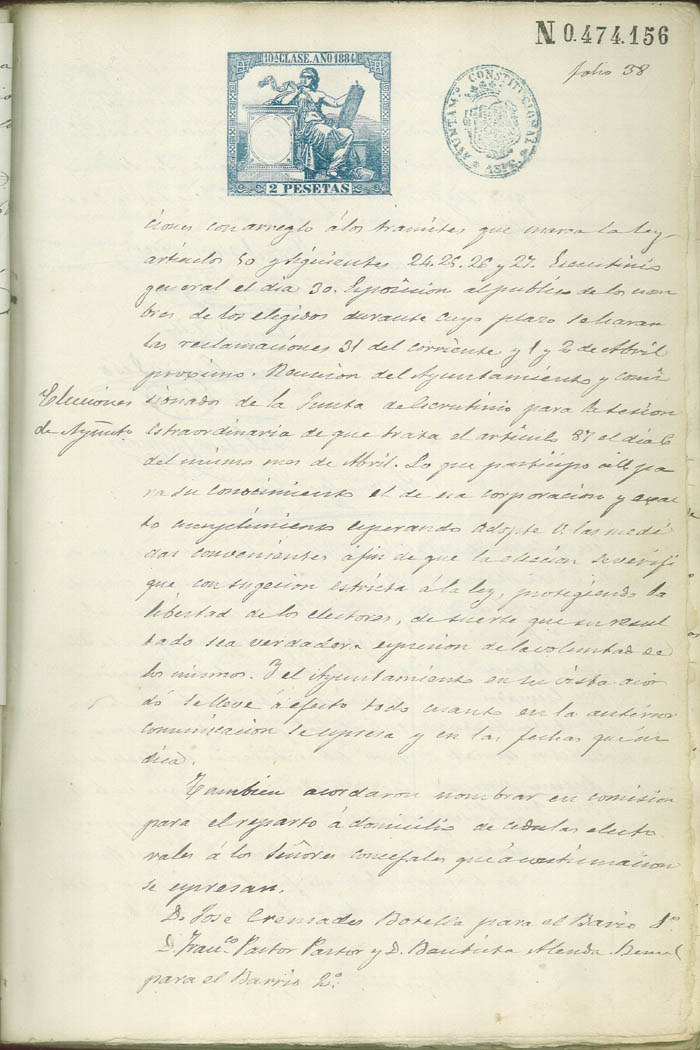 N. 0.474.156
folio 38
10ª CLASE. AÑO 1884
2 PESETAS
AYUNTAM.º CONSTITUCIONAL
* ASPE *
ciones con arreglo á los tramites que marca la ley
articulos 50 y siguientes 24. 25. 26 y 27. Escrutinio
general el dia 30. Exposicion al publico de los nom
bres de los elegidos durante cuyo plazo se haran
las reclamaciones 31 del corriente y 1 y 2 de Abril
proximo. Reunion del Ayuntamiento y comi
Elecciones
de Ayunto.
sionados de la Junta de Escrutinio para la sesion
extraordinaria de que trata el articulo 87 el dia 6
del mismo mes de Abril. Lo que participo á V. pa
ra su conocimiento el de esa corporacion y exac
to cumplimiento esperando adopte V. las medi
das convenientes á fin de que la eleccion se verifi
que con sugecion estricta á la ley, protegiendo la
libertad de los electores, de suerte que su resul
tado sea verdadera expresion de la voluntad de
los mismos. Y el Ayuntamiento en su vista acor
dó se lleve á efecto todo cuanto en la anterior
comunicacion se expresa y en las fechas que in
dica.
Tambien acordaron nombrar en comision
para el reparto á domicilio de cedulas electo
rales á los Señores concejales que á continuacion
se expresan.
D. Jose Cremades Botella para el Barrio 1º
D. Franco. Pastor Pastor y D. Bautista Alenda Bernal
para el Barrio 2º.